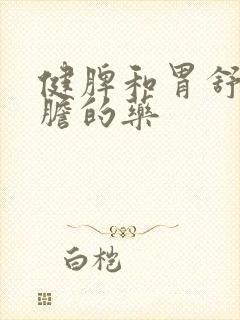 健脾和胃舒
膽的藥
白桤